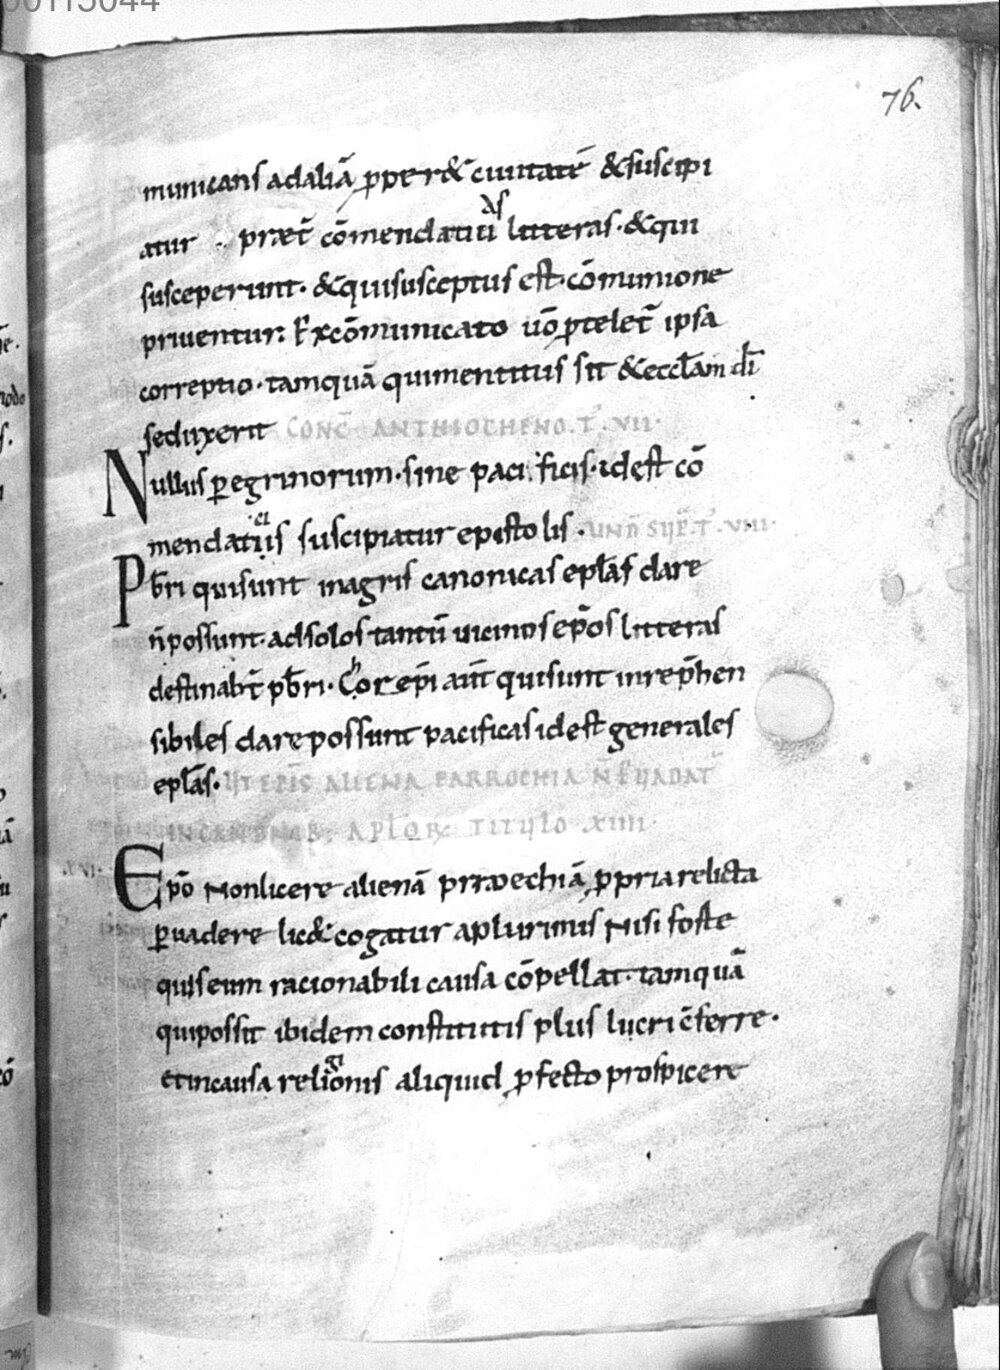 76.
municans ad aliā ꝓperet& ciuitatē &suscipi
atur præt̄ cōmendatiuas litteras · & qui
susceperunt · & qui susceptus est · cōmunione
priuentur : Excōmunicato uō ꝓtelet̄ ipsa
correptio · tamquā qui mentitus sit & ecctam dī
seduxerit CONC̄ ANTHIOCHENO . T̄ . VII ·
Nullus ꝑegrinorum · sine pacificis · id est cō
mendaticiis suscipiatur epistolis · UND SUP̄ T̄ . VIII ·
Pb̄ri qui sunt in agris canonicas epl̄as dare
n̄ possunt · ad solos tantū uicinos ep̄os litteras
destinabt̄ pb̄ri · Chorepi aūt qui sunt inrep̄hen
sibiles dare possunt pacificas id est generales
epl̄as · UT EPĪS ALIENA PARROCHIA N̄ EUADAT
IN CANONIB; APL̄OꝜ TITULO XIIII ·
.XVI. Epō Non licere alienā parroechiā ꝓpria relicta
ꝑuadere lic& cogatur a plurimis Nisi forte
quis eum racionabili causa cōpellat · tamquā
qui possit ibidem constitutis plus lucri cōferre ·
et in causa religionis aliquid ꝓfecto prospicere